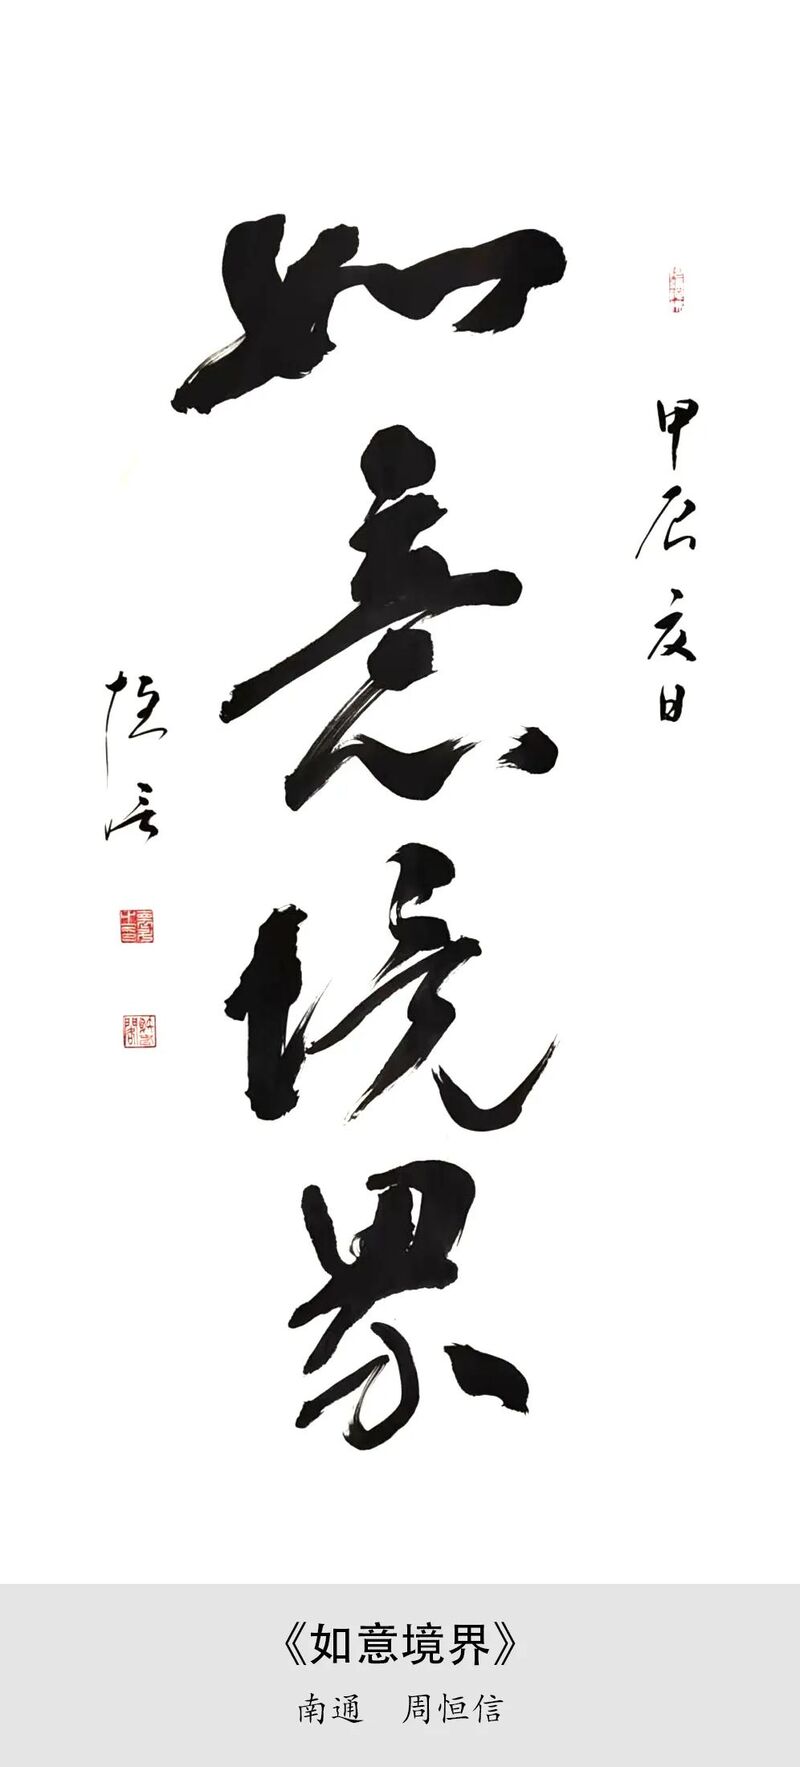 如意境界
甲辰夏日
恒信
《如意境界》
南通 周恒信